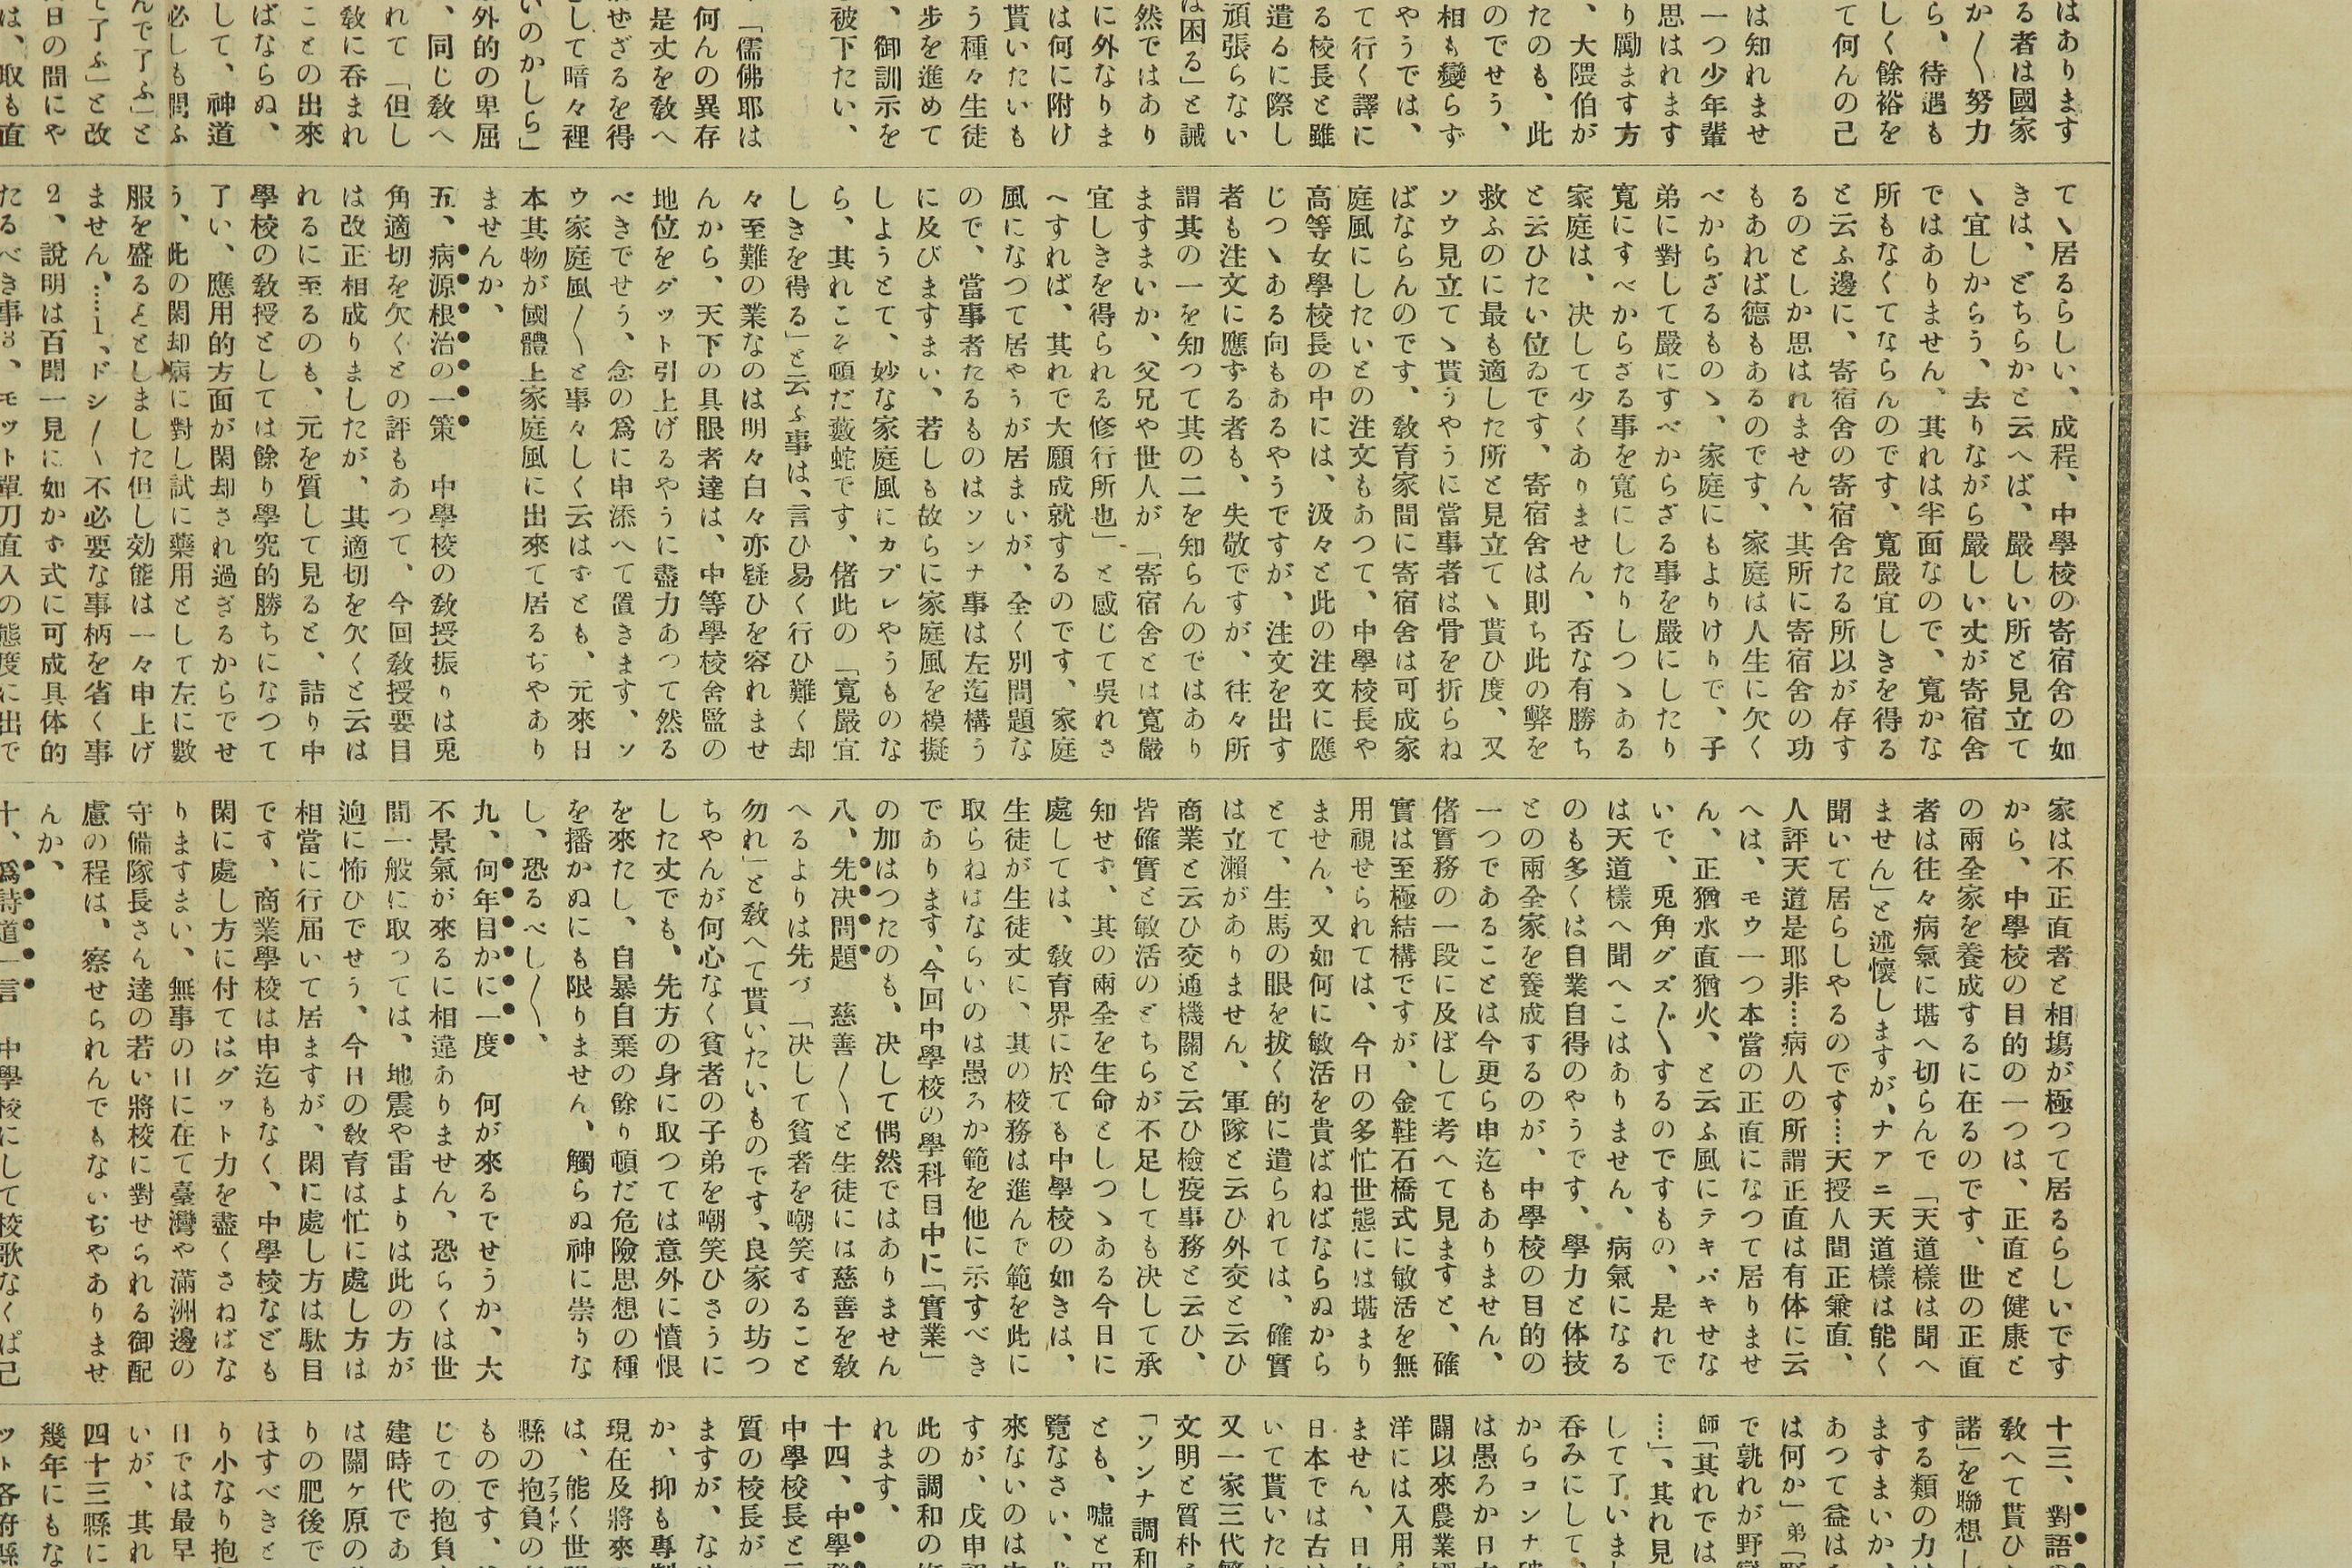 はあります
る者は國家
か〳〵努力
ら、待遇も
しく餘裕を
て何んの己
は知れませ
一つ少年輩
思はれます
り勵ます方
、大隈伯が
たのも、此
のでせう、
相も變らず
やうでは、
て行く譯に
る校長と雖
遣るに際し
頑張らない
は困る」と誡
然ではあり
に外なりま
は何に附け
貰いたいも
う種々生徒
歩を進めて
、御訓示を
被下たい、
「儒佛耶は
何んの異存
是丈を敎へ
せざるを得
して暗々裡
いのかしら」
外的の卑屈
、同じ敎へ
れて「但し
敎に呑まれ
ことの出來
ばならぬ、
して、神道
必しも問ふ
んで了ふ」と
て了ふ」と改
日の間にや
は、取も直
て〻居るらしい、成程、中學校の寄宿舍の如
きは、どちらかと云へば、嚴しい所と見立て
〻宜しからう、去りながら嚴しい丈が寄宿舍
ではありません、其れは半面なので、寬かな
所もなくてならんのです、寬嚴宜しきを得る
と云ふ邊に、寄宿舍の寄宿舍たる所以が存す
るのとしか思はれません、其所に寄宿舍の功
もあれば德もあるのです、家庭は人生に欠く
べからざるもの〻、家庭にもよりけりで、子
弟に對して嚴にすべからざる事を嚴にしたり
寬にすべからざる事を寬にしたりしつ〻ある
家庭は、決して少くありません、否な有勝ち
と云ひたい位ゐです、寄宿舍は則ち此の弊を
救ふのに最も適した所と見立て〻貰ひ度、又
ソウ見立て〻貰うやうに當事者は骨を折らね
ばならんのです、敎育家間に寄宿舍は可成家
庭風にしたいとの注文もあつて、中學校長や
高等女學校長の中には、汲々と此の注文に應
じつ〻ある向もあるやうですが、注文を出す
者も注文に應ずる者も、失敬ですが、往々所
謂其の一を知つて其の二を知らんのではあり
ますまいか、父兄や世人が「寄宿舍とは寬嚴
宜しきを得られる修行所也」と感じて吳れさ
へすれば、其れで大願成就するのです、家庭
風になつて居やうが居まいが、全く別問題な
ので、當事者たるものはソンナ事は左迄構う
に及びますまい、若しも故らに家庭風を模擬
しようとて、妙な家庭風にカブレやうものな
ら、其れこそ頓だ藪蛇です、偖此の「寬嚴宜
しきを得る」と云ふ事は、言ひ易く行ひ難く却
々至難の業なのは明々白々亦疑ひを容れませ
んから、天下の具眼者達は、中等學校舍監の
地位をグット引上げるやうに盡力あつて然る
べきでせう、念の爲に申添へて置きます、ソ
ウ家庭風〳〵と事々しく云はずとも、元來日
本其物が國體上家庭風に出來て居るぢやあり
ませんか、
五、病源根治の一策　中學校の敎授振りは兎
角適切を欠くとの評もあつて、今回敎授要目
は改正相成りましたが、其適切を欠くと云は
れるに至るのも、元を質して見ると、詰り中
學校の敎授としては餘り學究的勝ちになつて
了い、應用的方面が閑却され過ぎるからでせ
う、此の閑却病に對し試に藥用として左に數
服を盛るとしました但し効能は一々申上げ
ません、……1、ドシ〳〵不必要な事柄を省く事
2、説明は百聞一見に如かず式に可成具体的
たるべき事3、モット單刀直入の態度に出で
家は不正直者と相塲が極つて居るらしいです
から、中學校の目的の一つは、正直と健康と
の兩全家を養成するに在るのです、世の正直
者は往々病氣に堪へ切らんで「天道様は聞へ
ません」と述懷しますが、ナアニ天道様は能く
聞いて居らしやるのです……天授人間正兼直、
人評天道是耶非……病人の所謂正直は有体に云
へは、モウ一つ本當の正直になつて居りませ
ん、正猶水直猶火、と云ふ風にテキパキせな
いで、兎角グズ〴〵するのですもの、是れで
は天道様へ聞へこはありません、病氣になる
のも多くは自業自得のやうです、學力と体技
との兩全家を養成するのが、中學校の目的の
一つであることは今更ら申迄もありません、
偖實務の一段に及ばして考へて見ますと、確
實は至極結構ですが、金鞋石橋式に敏活を無
用視せられては、今日の多忙世態には堪まり
ません、又如何に敏活を貴ばねばならぬから
とて、生馬の眼を抜く的に遣られては、確實
は立瀬がありません、軍隊と云ひ外交と云ひ
商業と云ひ交通機關と云ひ檢疫事務と云ひ、
皆確實と敏活のどちらが不足しても决して承
知せず、其の兩全を生命としつ〻ある今日に
處しては、敎育界に於ても中學校の如きは、
生徒が生徒丈に、其の校務は進んで範を此に
取らねはならいのは愚ろか範を他に示すべき
であります、今回中學校の學科目中に「實業」
の加はつたのも、决して偶然ではありません
八、先決問題　慈善〳〵と生徒には慈善を敎
へるよりは先づ「决して貧者を嘲笑すること
勿れ」と敎へて貰いたいものです、良家の坊つ
ちやんが何心なく貧者の子弟を嘲笑ひさうに
した丈でも、先方の身に取つては意外に憤恨
を來たし、自暴自棄の餘り頓だ危險思想の種
を播かぬにも限りません、觸らぬ神に祟りな
し、恐るべし〳〵、
九、何年目かに一度　何が來るでせうか、大
不景氣が來るに相違ありません、恐らくは世
間一般に取つては、地震や雷よりは此の方が
逈に怖ひでせう、今日の敎育は忙に處し方は
相當に行届いて居ますが、閑に處し方は駄目
です、商業學校は申迄もなく、中學校なども
閑に處し方に付てはグット力を盡くさねばな
りますまい、無事の日に在て臺灣や滿洲邊の
守備隊長さん達の若い將校に對せられる御配
慮の程は、察せられんでもないぢやありませ
んか、
十、爲詩道一言　中學校にして校歌なくば己
十三、對語
敎へて貰ひ
諾」を聯想し
する類の力は
ますまいか、
あつて益は
は何か」弟「
で孰れが野
師「其れでは
……」、其れ見
して了いま
呑みにして、
からコンナ
は愚ろか日
闢以來農業
洋には入用
ません、日
日本では古
いて貰いた
又一家三代
文明と質朴
「ソンナ調和
とも、嘘と
覽なさい、
來ないのは
すが、戊申
此の調和の
れます、
十四、中學
中學校長と
質の校長が
ますが、な
か、抑も專
現在及將來
は、能く世
縣の抱負の
プライド
ものです、
じての抱負
建時代であ
は關ヶ原の
りの肥後で
ほすべきと
り小なり抱
日では最早
いが、其れ
四十三縣に
幾年にもな
ット各府縣